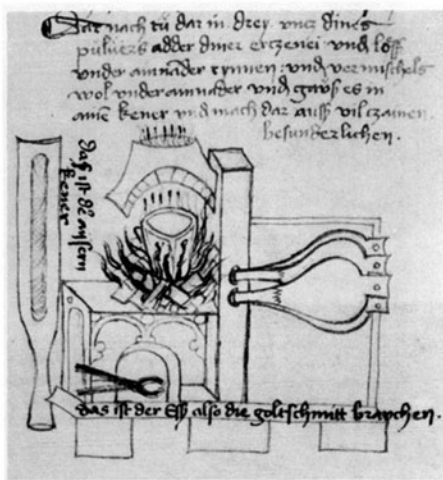 Dar nach tů dar in drey vncz dines
pulvers adder diner erczenei vnd loss
vnder ainnander rynnen : vnd vermischels
wol vnderainnader vnd gaus es in
ainen kener vnd mach dar auss vil czainen
besunderlichen .
das ist der
kener
das ist der Ess also die goltschmitt brauchen .